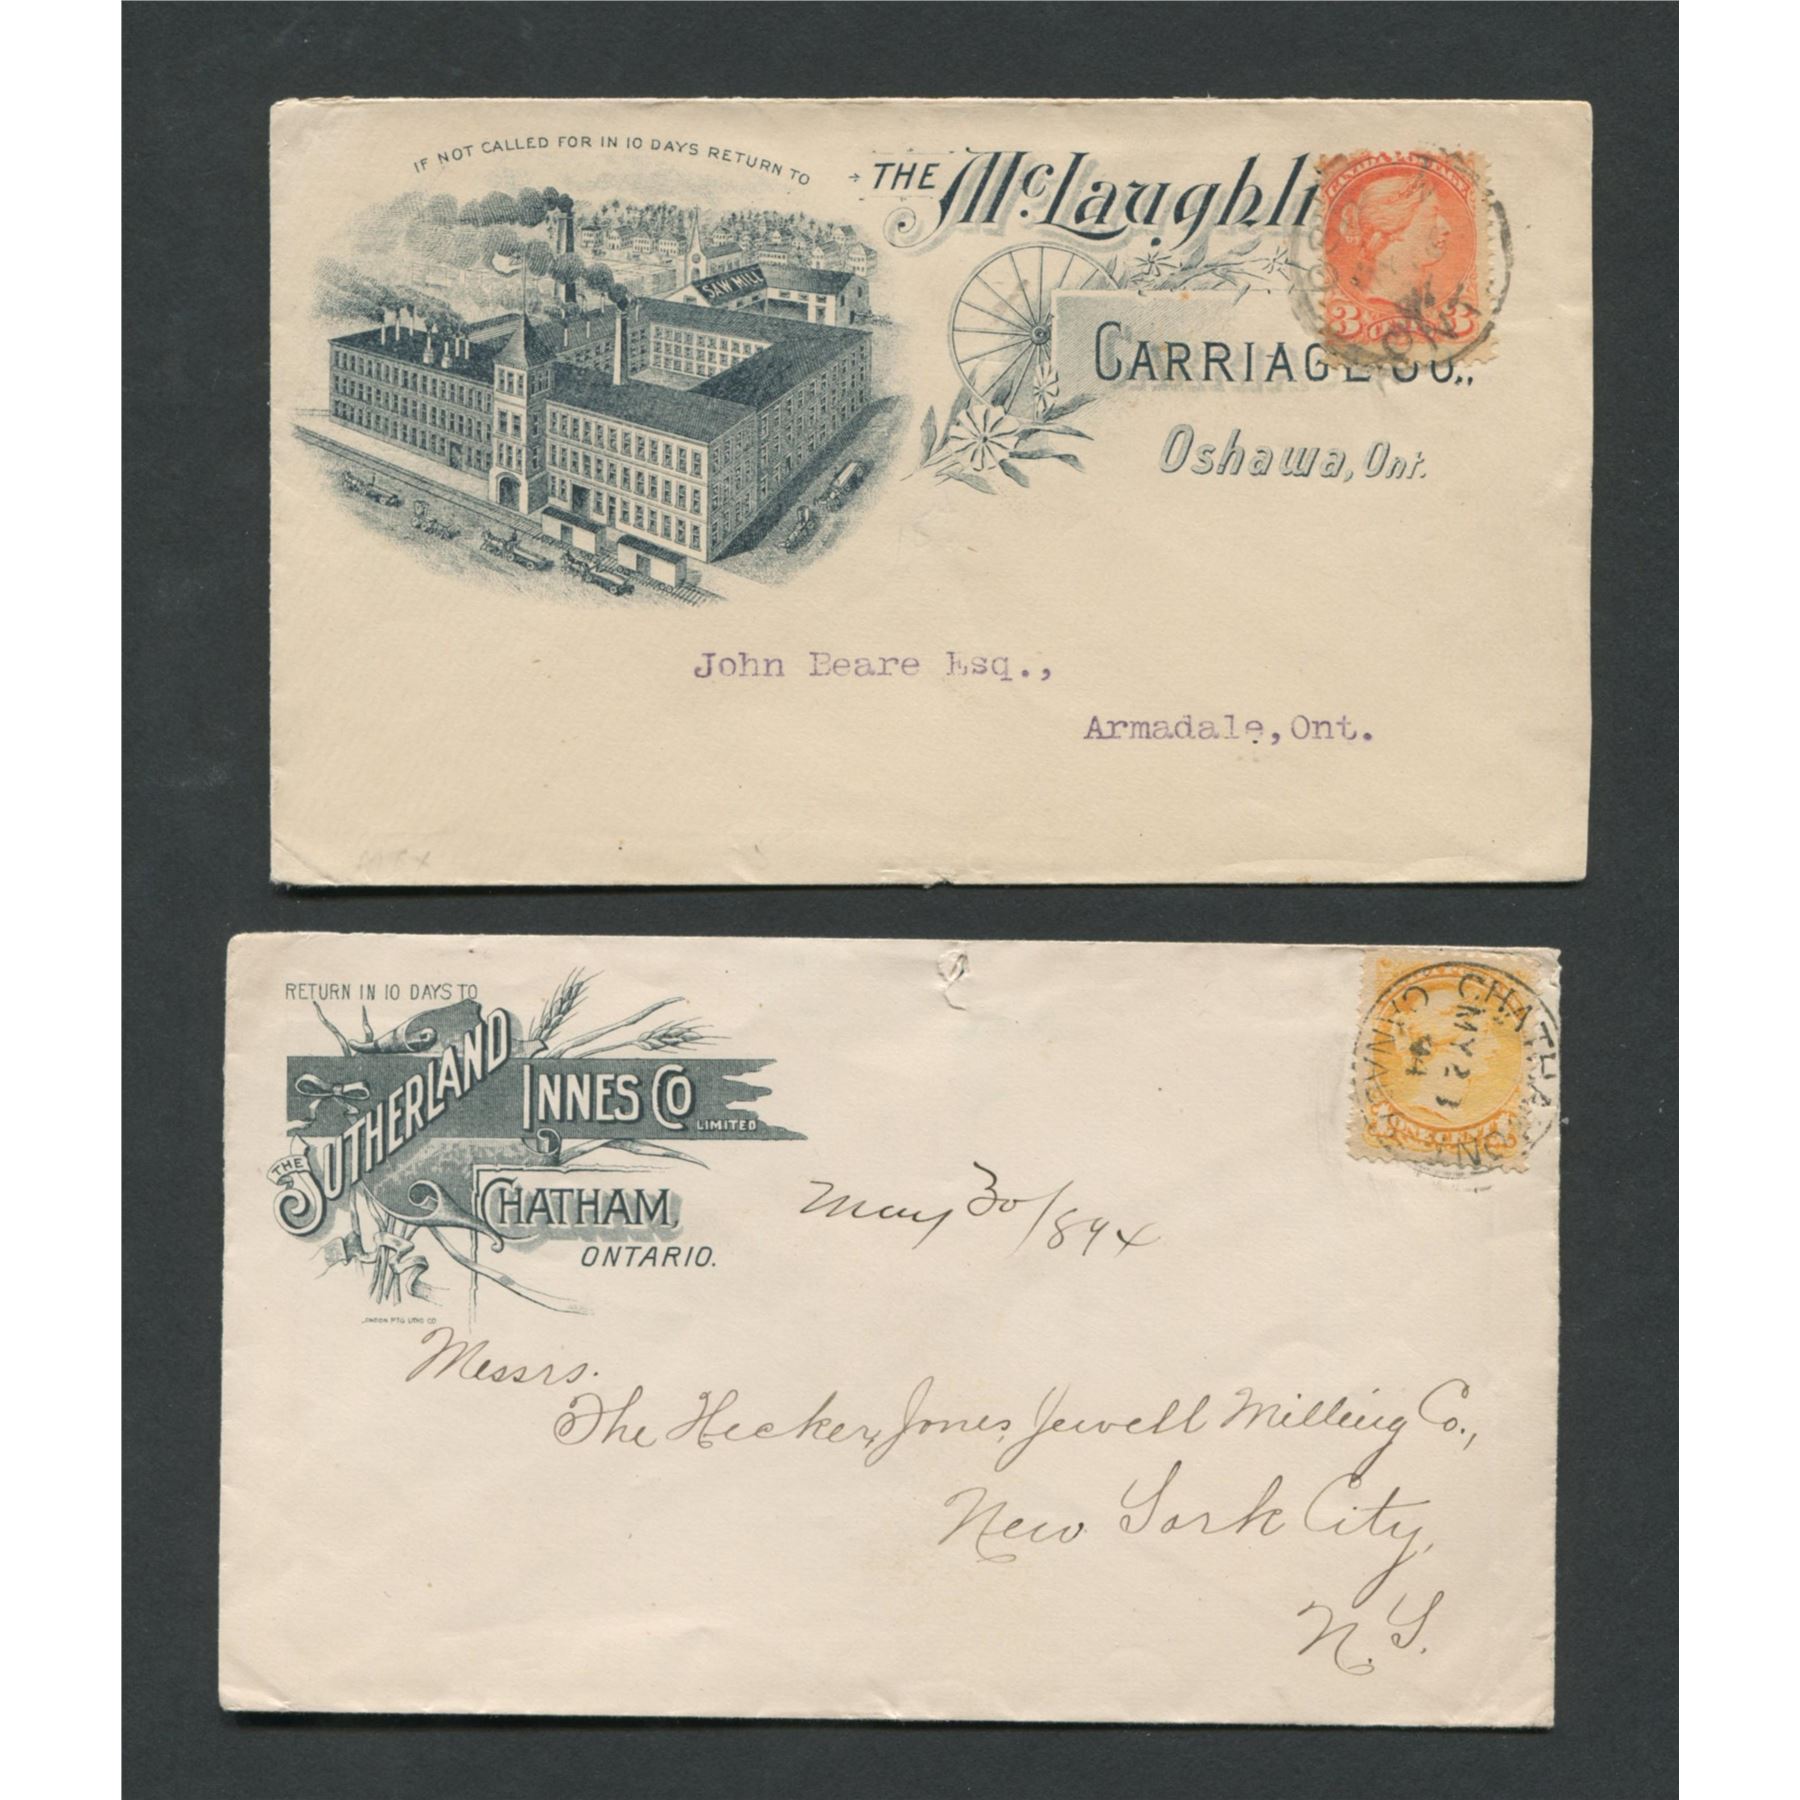 IF NOT CALLED FOR IN 10 DAYS RETURN TO
THE McLaughli
CARRIAGE CO.,
Oshawa, Ont.
SAW MILL
3 CENTS 3
John Beare Esq.,
Armadale, Ont.
RETURN IN 10 DAYS TO
THE SUTHERLAND
INNES CO
LIMITED
CHATHAM,
ONTARIO.
LONDON PTG LITHO CO
CHATHAM
MY 2
94
ONT
CANADA
ONE CENT
May 30/894
Messrs.
The Hecker, Jones, Jewell Milling Co.,
New York City,
N.Y.